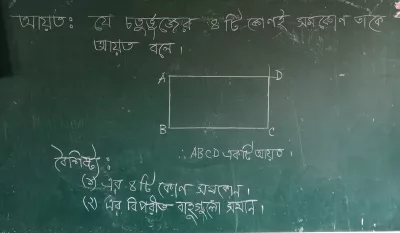 আয়তঃ যে চতুর্ভুজের ৪টি কোণই সমকোণ তাকে
আয়ত বলে।
A D
B C
∴ ABCD একটি আয়ত।
বৈশিষ্ট্যঃ
(১) এর ৪টি কোণ সমকোণ।
(২) এর বিপরীত বাহুগুলো সমান।